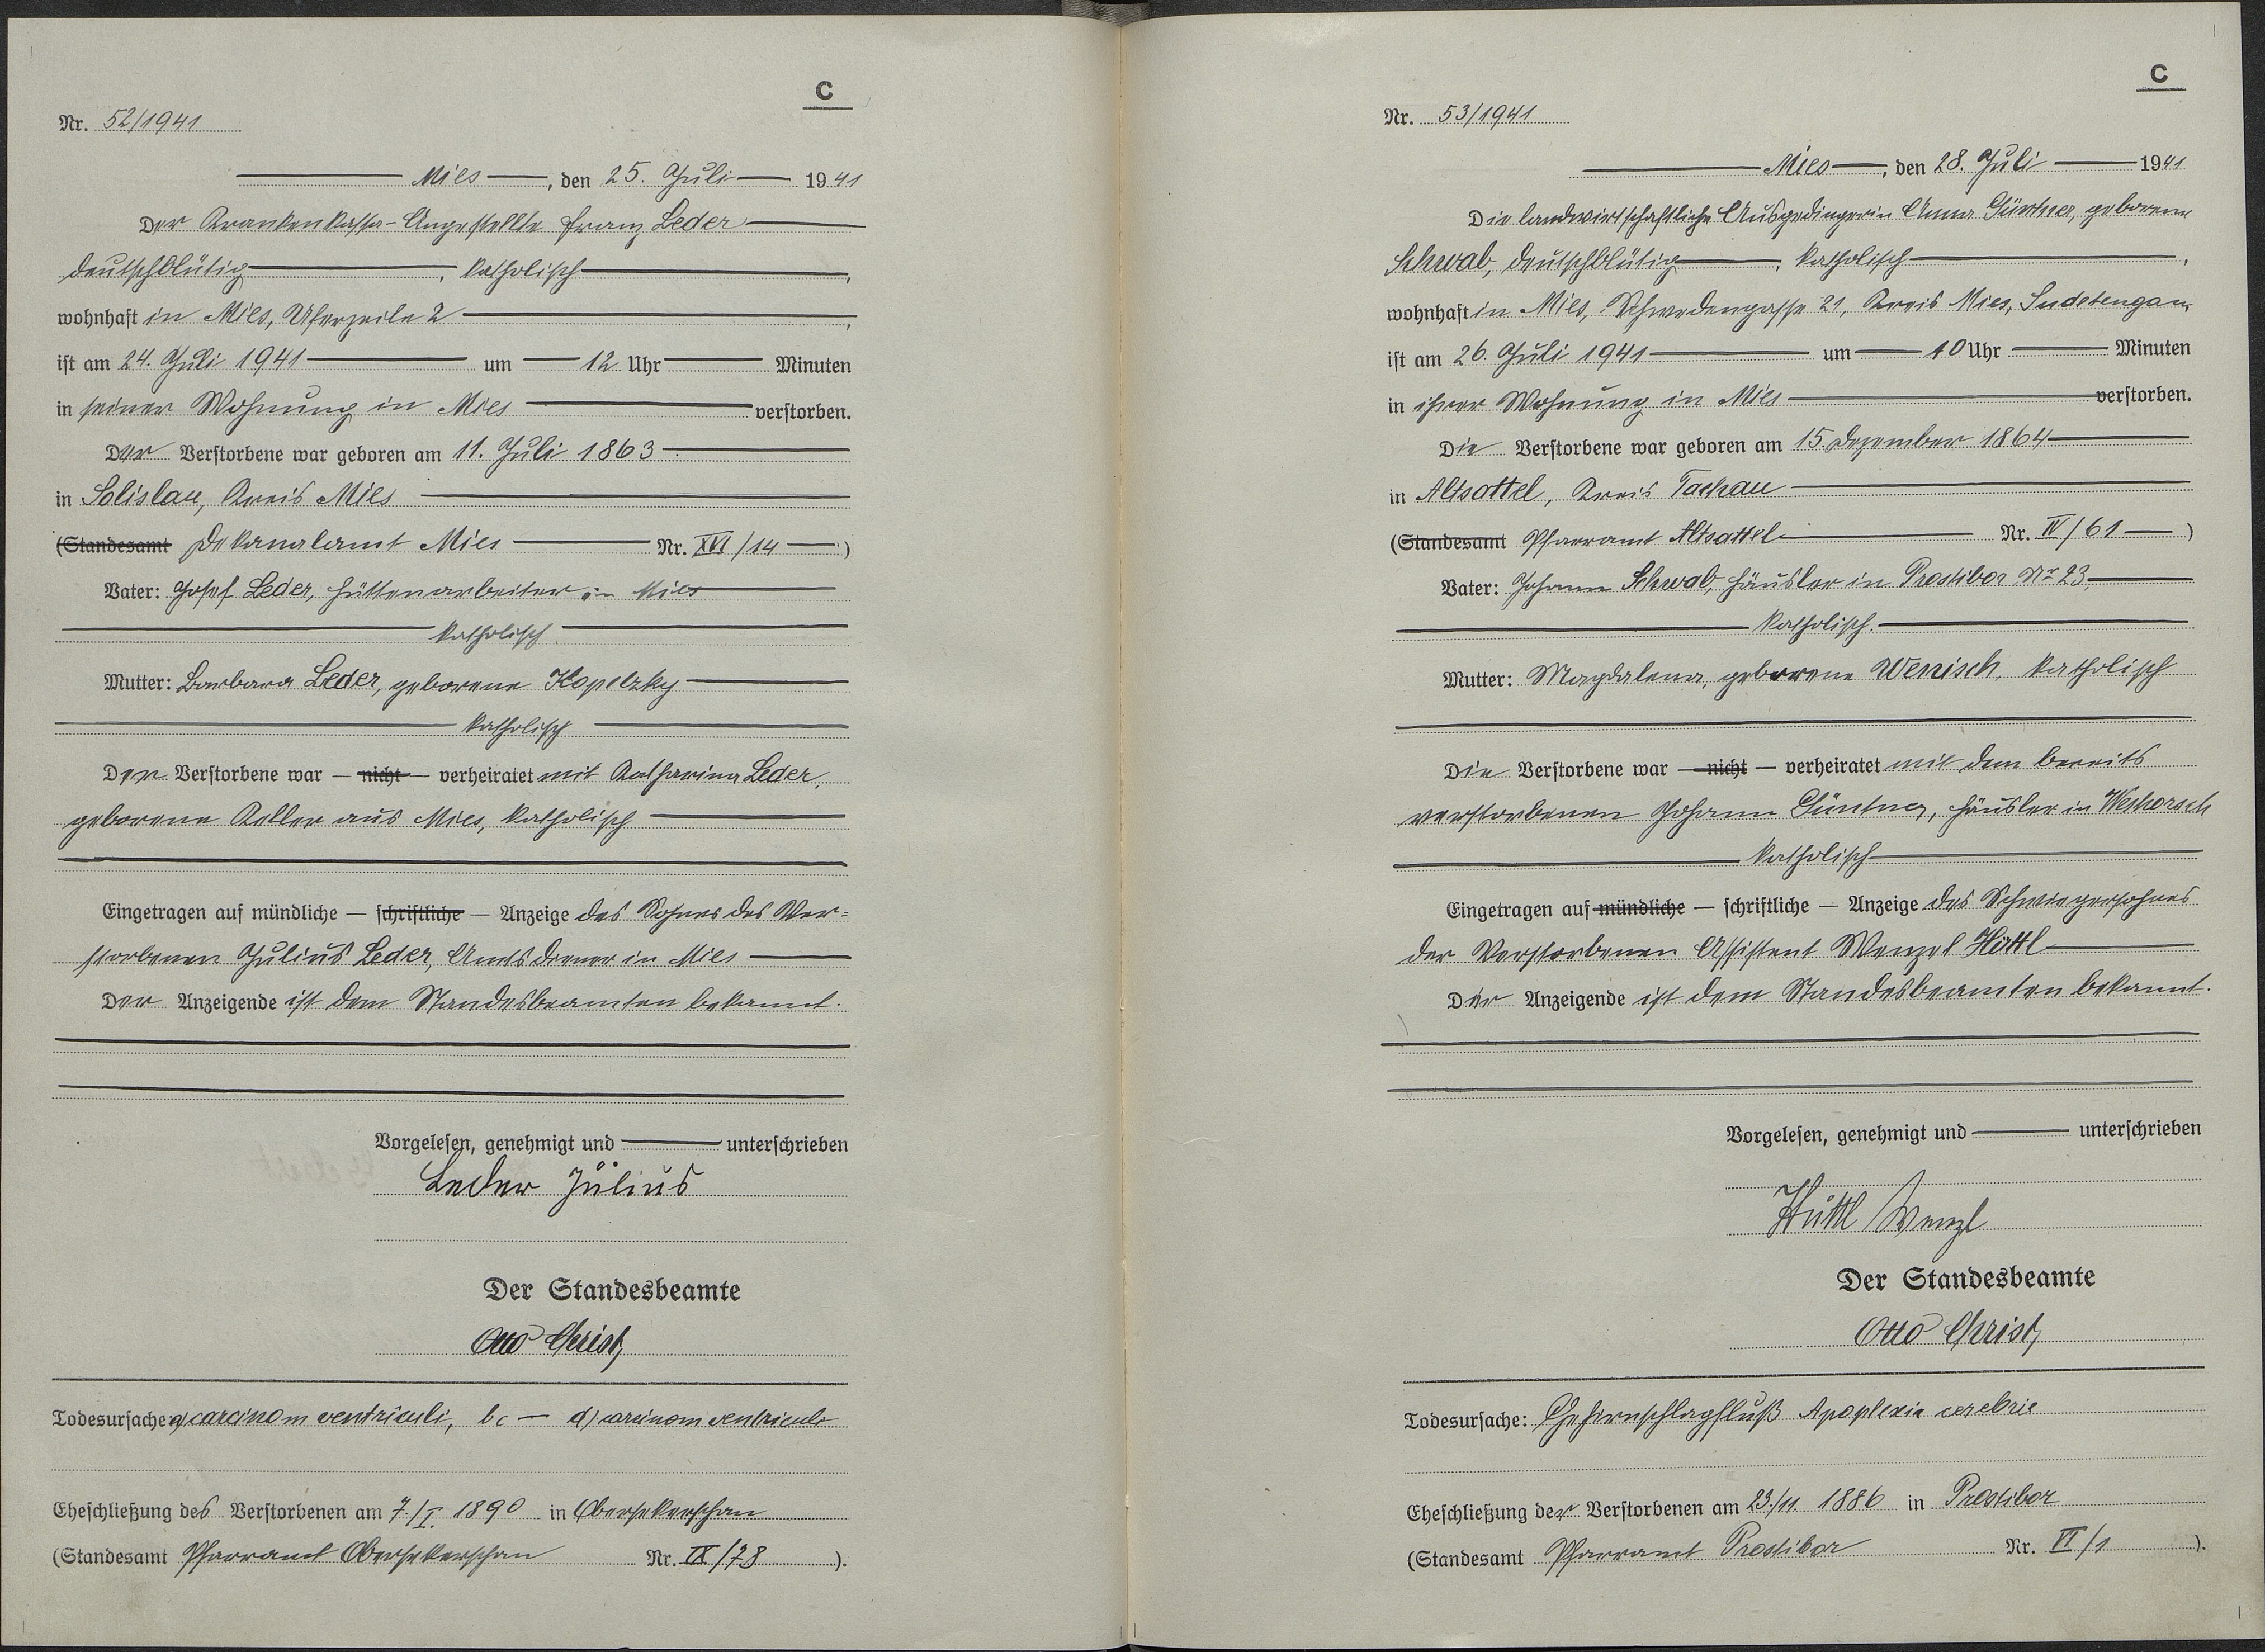 C
Nr. 52/1941
Mies, den 25. Juli 1941
Der Krankenkassa-Angestellte Franz Leder
deutschblütig, katholisch,
wohnhaft in Mies, Uferzeile 2,
ist am 24. Juli 1941 um 12 Uhr Minuten
in seiner Wohnung in Mies verstorben.
Der Verstorbene war geboren am 11. Juli 1863
in Solislau, Kreis Mies
(Standesamt Dekanalamt Mies Nr. XVI/14)
Vater: Josef Leder, Hüttenarbeiter in Mies
katholisch
Mutter: Barbara Leder, geborene Kopetzky
katholisch
Der Verstorbene war — nicht — verheiratet mit Katharina Leder,
geborene Keller aus Mies, katholisch
Eingetragen auf mündliche — schriftliche — Anzeige des Sohnes des Ver=
storbenen Julius Leder, Amtsdiener in Mies
Der Anzeigende ist dem Standesbeamten bekannt.
Vorgelesen, genehmigt und unterschrieben
Leder Julius
Der Standesbeamte
Otto Christ
Todesursache: a) carcinom ventriculi, bc — d) carcinom ventriculi
Eheschließung des Verstorbenen am 7./I. 1890 in Obersekerschan
(Standesamt Pfarramt Obersekerschan Nr. IX/78).
C
Nr. 53/1941
Mies, den 28. Juli 1941
Die landwirtschaftliche Ausgedingerin Anna Güntner, geborene
Schwab, deutschblütig, katholisch,
wohnhaft in Mies, Schwedengasse 21, Kreis Mies, Sudetengau,
ist am 26. Juli 1941 um 10 Uhr Minuten
in ihrer Wohnung in Mies verstorben.
Die Verstorbene war geboren am 15. Dezember 1864
in Altsattel, Kreis Tachau
(Standesamt Pfarramt Altsattel Nr. IV/61)
Vater: Johann Schwab, Häusler in Prostibor Nr 23,
katholisch.
Mutter: Magdalena, geborene Wenisch, katholisch
Die Verstorbene war — nicht — verheiratet mit dem bereits
verstorbenen Johann Güntner, Häusler in Weshorsch
katholisch
Eingetragen auf mündliche — schriftliche — Anzeige des Schwiegersohnes
der Verstorbenen Assistent Wenzel Hüttl
Der Anzeigende ist dem Standesbeamten bekannt.
Vorgelesen, genehmigt und unterschrieben
Hüttl Wenzl
Der Standesbeamte
Otto Christ
Todesursache: Gehirnschlagfluß Apoplexia cerebrie
Eheschließung der Verstorbenen am 23./11. 1886 in Prostibor
(Standesamt Pfarramt Prostibor Nr. VI/1).